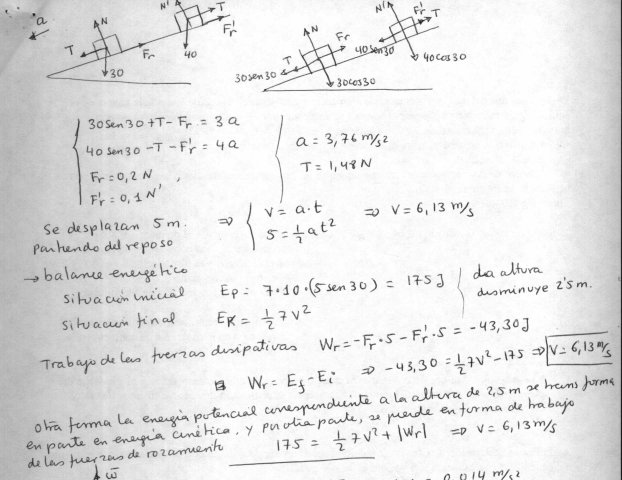 a
N
T
Fr
30
N'
T
F'r
40
N
T
Fr
30sen30
30cos30
N'
T
F'r
40sen30
40cos30
30sen30 + T - Fr = 3a
40sen30 - T - F'r = 4a
Fr = 0,2 N
F'r = 0,1 N'
a = 3,76 m/s²
T = 1,48 N
Se desplazan 5 m. ⇒ v = a·t ⇒ v = 6,13 m/s
partiendo del reposo 5 = ½ a t²
→ balance energético
situación inicial Ep = 7·10·(5 sen 30) = 175 J la altura
disminuye 2'5 m.
situación final EK = ½ 7 v²
Trabajo de las fuerzas disipativas Wr = -Fr·5 - F'r·5 = -43,30 J
Wr = Ef - Ei ⇒ -43,30 = ½ 7v² - 175 ⇒ v = 6,13 m/s
Otra forma La energía potencial correspondiente a la altura de 2,5 m se transforma
en parte en energía cinética, y por otra parte, se pierde en forma de trabajo
de las fuerzas de rozamiento 175 = ½ 7v² + |Wr| ⇒ v = 6,13 m/s
ω
0,014 m/s²